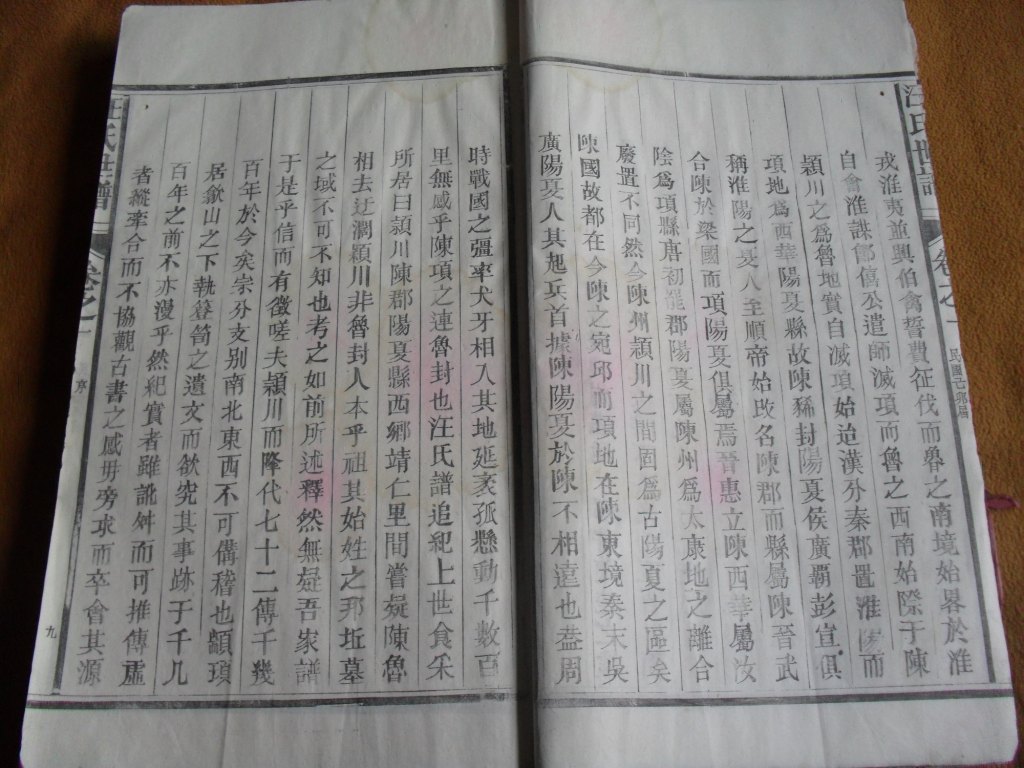 汪氏世譜
卷之一
戎淮夷並興伯禽誓費征伐而魯之南境始畧於淮
自會淮謀鄫僖公遣師滅項而魯之西南始際于陳
潁川之爲魯地實自滅項始迨漢分秦郡置淮陽而
項地爲西華陽夏縣故陳豨封陽夏侯廣霸彭宣俱
稱淮陽之夏人至順帝始改名陳郡而縣屬陳晉武
合陳於梁國而項陽夏俱屬焉晉惠立陳西華屬汝
陰爲項縣唐初龍郡陽夏屬陳州爲太康地之離合
廢置不同然今陳州潁川之間固爲古陽夏之區矣
陳國故都在今陳之宛邱而項地在陳東境秦末吳
廣陽夏人其起兵首據陳陽夏於陳不相遠也葢周
時戰國之彊率犬牙相入其地延袤孤懸動千數百
里無感乎陳項之連魯封也汪氏譜追紀上世食采
所居曰潁川陳郡陽夏縣西鄉靖仁里間嘗疑陳魯
相去迂濶潁川非魯封人本乎祖其始姓之邦坵墓
之域不可不知也考之如前所述釋然無疑吾家譜
于是乎信而有徵嗟夫潁川而降代七十二傳千幾
百年於今矣崇分支别南北東西不可備稽也顓頊
居歙山之下執簪笥之遺文而欲究其事跡于千几
百年之前不亦漫乎然紀實者雖訛舛而可推傳虛
者縱牽合而不協觀古書之感毋旁求而卒會其源
汪氏世譜
卷之一
序
九